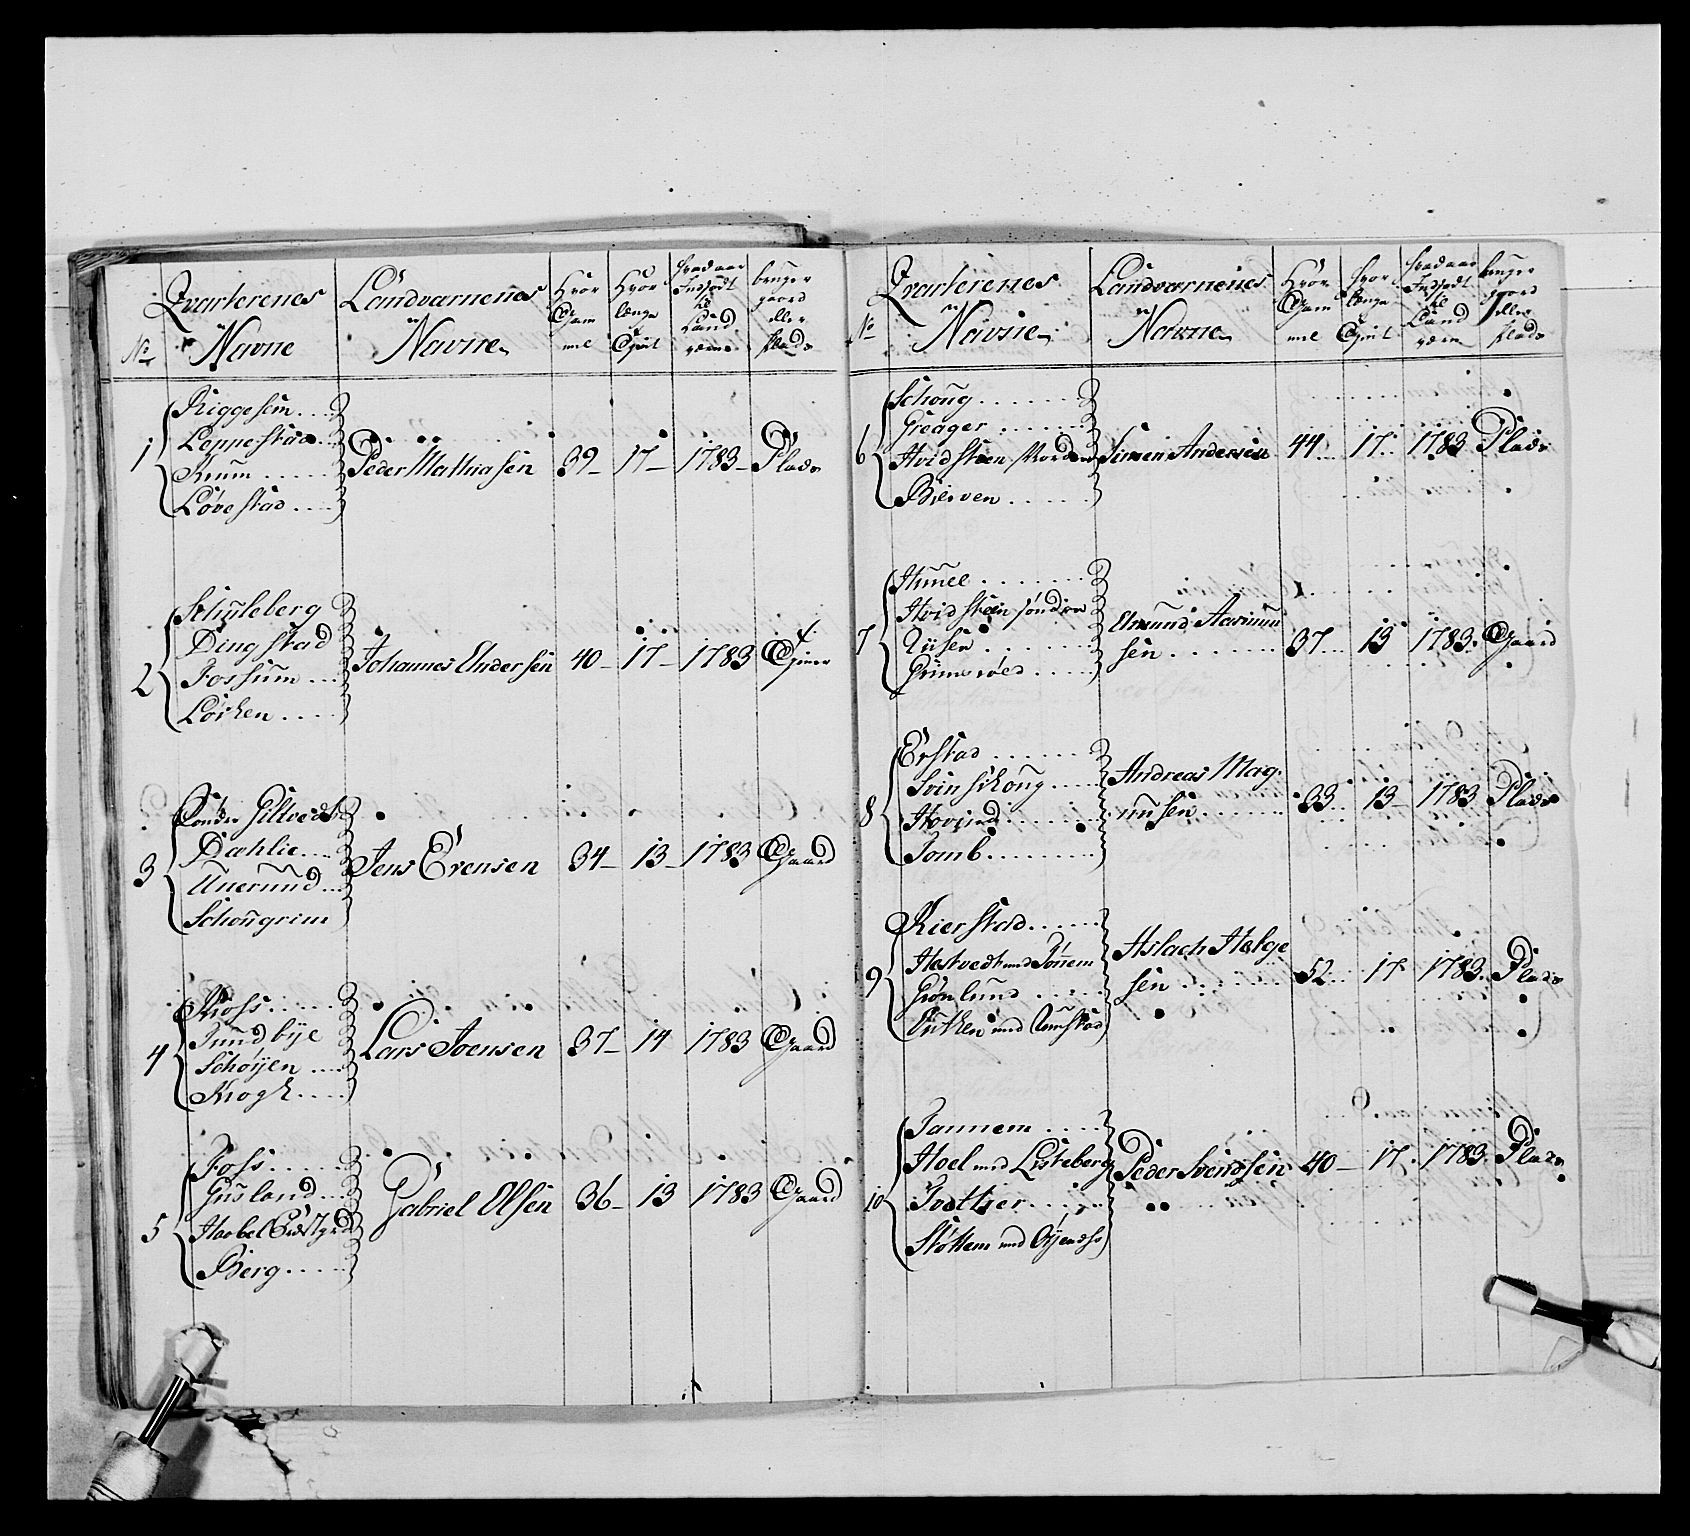 No
Qvarterenes
Navne
Landværnenes
Navne
Hvor
Gam
mel
Hvor
længe
Tjent
hvad aar
Indsadt
til
Land
værn
bruger
gaard
eller
Plads
1
Riggesem
Leppestad
Knum
Løvestad
Peder Mathiasen 39 17 1783 Plads
2
Schulleberg
Dingstad
Fossum
Lørken
Johannes Endersen 40 17 1783
3
Sønder Sillvedt
Dahlie
Unerund
Schougrim
Jens Evensen 34 13 1783 Gaard
4
Moss
Sundbye
Schøyen
Krogh
Lars Svensen 37 14 1783 Gaard
5
Foss
Gusland
Haabel Østgrd
Berg
Gabriel Olsen 36 13 1783 Gaard
No
Qvarterenes
Navne
Landværnenes
Navne
Hvor
Gam
mel
hvor
længe
Tjent
hvad aar
Indsadt
til
Land
værn
bruger
gaard
eller
Plads
6
Schoug
Greager
Hvidsteen Norden
Bierven
Simen Andersen 44 17 1783 Plads
7
Huuel
Hvidsteen sønden
Riisen
Grimsrøed
Amund Aamun
sen 37 13 1783 Gaard
8
Erstad
Svinskoug
Hovind
Tomb
Andreas Mag
nusen 33 13 1783 Plads
9
Kierstad
Hestvedt med Tønnem
Grønlund
med
Aslach Helge
sen 52 17 1783 Plads
10
Tannem
Hoel med Listeberg
Tvetter
Støttem med
Peder Svendsen 40 17 1783 Plads